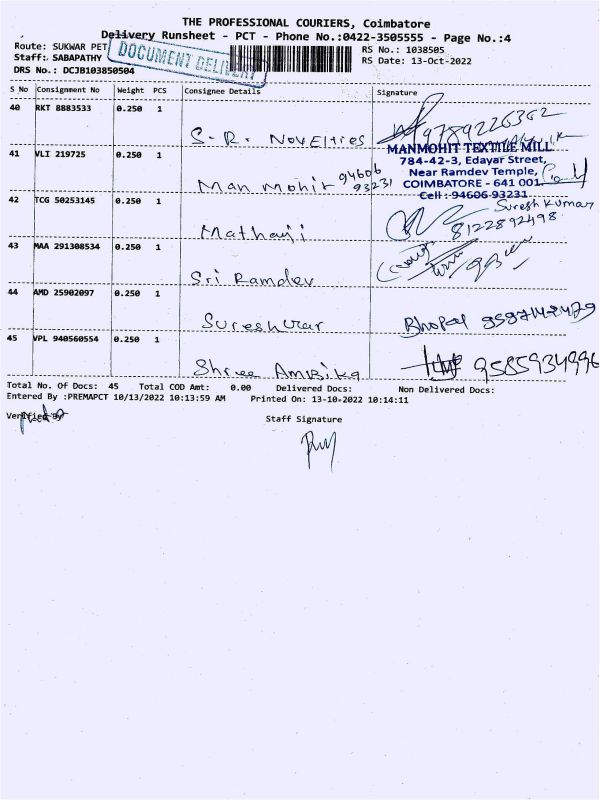 THE PROFESSIONAL COURIERS, Coimbatore
Delivery Runsheet - PCT - Phone No.:0422-3505555 - Page No.:4
Route: SUKWAR PET
DOCUMENT DELIVERY
RS No.: 1038505
Staff: SABAPATHY
RS Date: 13-Oct-2022
DRS No.: DCJB103850504
S No Consignment No Weight PCS Consignee Details Signature
40 RKT 8883533 0.250 1
S.R. Novelties 9789226362
41 VLI 219725 0.250 1
Man mohit 94606 93231
MANMOHIT TEXTILE MILL
784-42-3, Edayar Street,
Near Ramdev Temple,
COIMBATORE - 641 001.
Cell : 94606 93231
42 TCG 50253145 0.250 1
Mathaji
Suresh Kumar
8122892498
43 MAA 291308534 0.250 1
Sri Ramdev
44 AMD 25902097 0.250 1
Sureshwar
45 VPL 940560554 0.250 1
Shree Ambika 9585934996
Total No. Of Docs: 45 Total COD Amt: 0.00 Delivered Docs: Non Delivered Docs:
Entered By :PREMAPCT 10/13/2022 10:13:59 AM Printed On: 13-10-2022 10:14:11
Verified By
Staff Signature